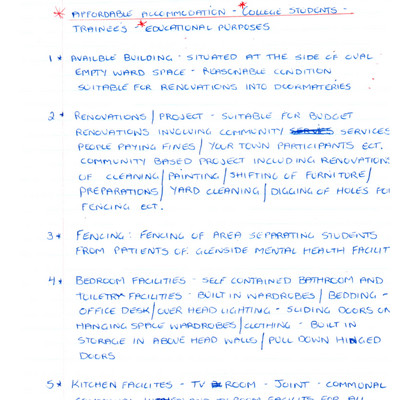 * AFFORDABLE ACCOMMODATION - * COLLEGE STUDENTS -
TRAINEES - * EDUCATIONAL PURPOSES
1 * AVAILBLE BUILDING - SITUATED AT THE SIDE OF OVAL
EMPTY WARD SPACE - REASONABLE CONDITION
SUITABLE FOR RENOVATIONS INTO DOORMATERIES
2 * RENOVATIONS / PROJECT - SUITABLE FOR BUDGET
RENOVATIONS INVOLVING COMMUNITY SERVICES
PEOPLE PAYING FINES / YOUR TOWN PARTICIPANTS ECT.
COMMUNITY BASED PROJECT INCLUDING RENOVATION
OF CLEANING / PAINTING / SHIFTING OF FURNITURE /
PREPARATIONS / YARD CLEANING / DIGGING OF HOLES FO
FENCING ECT.
3 * FENCING : FENCING OF AREA SEPARATING STUDENTS
FROM PATIENTS OF GLENSIDE MENTAL HEALTH FACILIT
4 * BEDROOM FACILITIES - SELF CONTAINED BATHROOM AND
TUILETRY FACILITIES - BUILT IN WARDROBES / BEDDING -
OFFICE DESK / OVER HEAD LIGHTING - SLIDING DOORS ON
HANGING SPACE WARDROBES / CLOTHING - BUILT IN
STORAGE IN ABOVE HEAD WALLS / PULL DOWN HINGED
DOORS
5 * KITCHEN FACILITES - TV ROOM - JOINT - COMMUNAL